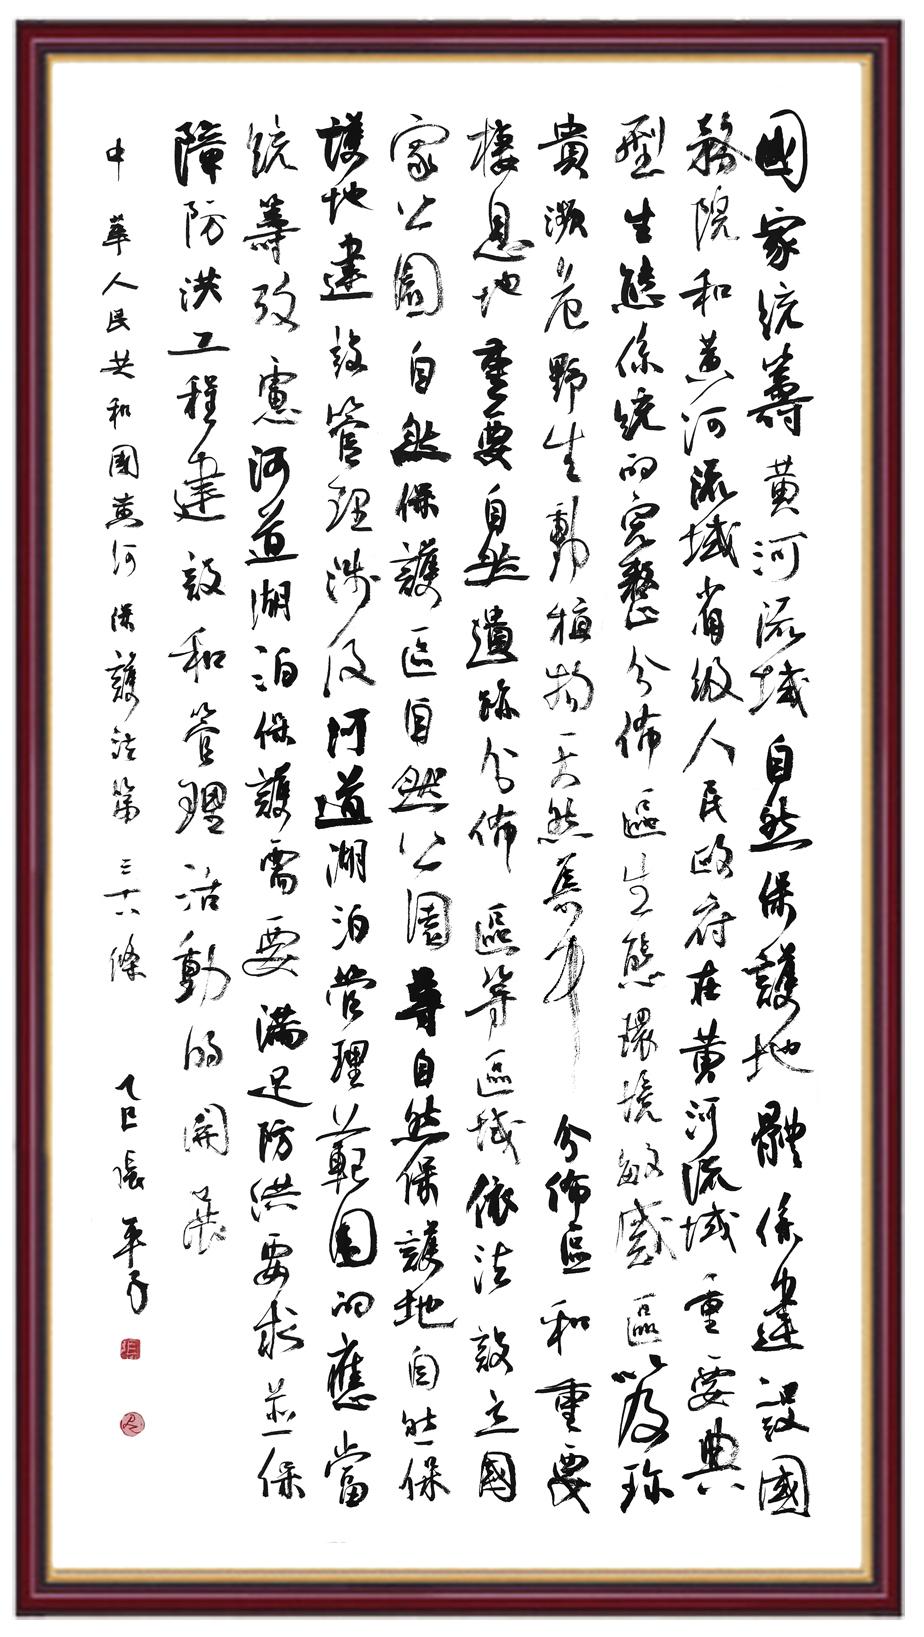 國家統籌黃河流域自然保護地體係建設國
務院和黃河流域省級人民政府在黃河流域重要典
型生態係統的完整分佈區生態環境敏感區以及珍
貴瀕危野生動植物天然集中分佈區和重要
棲息地重要自然遺跡分佈區等區域依法設立國
家公園自然保護區自然公園等自然保護地自然保
護地建設管理涉及河道湖泊管理範圍的應當
統籌考慮河道湖泊保護需要滿足防洪要求並保
障防洪工程建設和管理活動的開展
中華人民共和國黃河保護法第三十八條 乙巳張平子